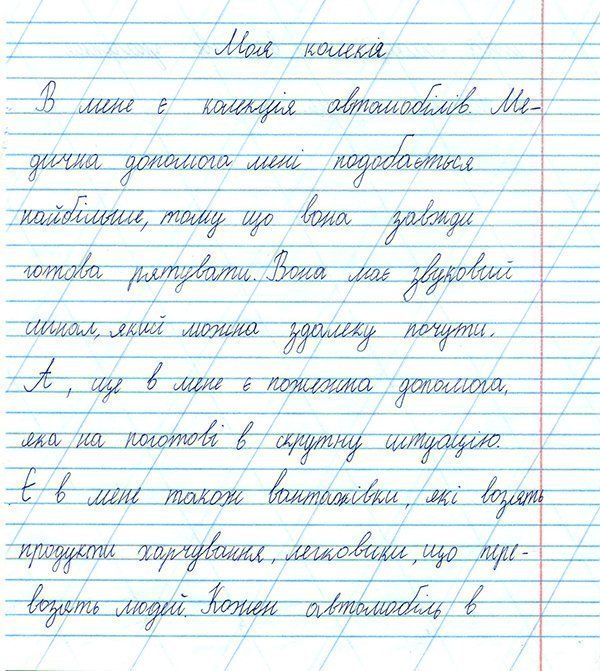 Моя колекія
В мене є колекція автомобілів. Ме-
дична допомога мені подобається
найбільше, тому що вона завжди
готова рятувати. Вона має звуковий
сигнал, який можна здалеку почути.
А, ще в мене є пожежна допомога,
яка на поготові в скрутну ситуацію.
Є в мене також вантажівки, які возять
продукти харчування, легковики, що пере-
возять людей. Кожен автомобіль в